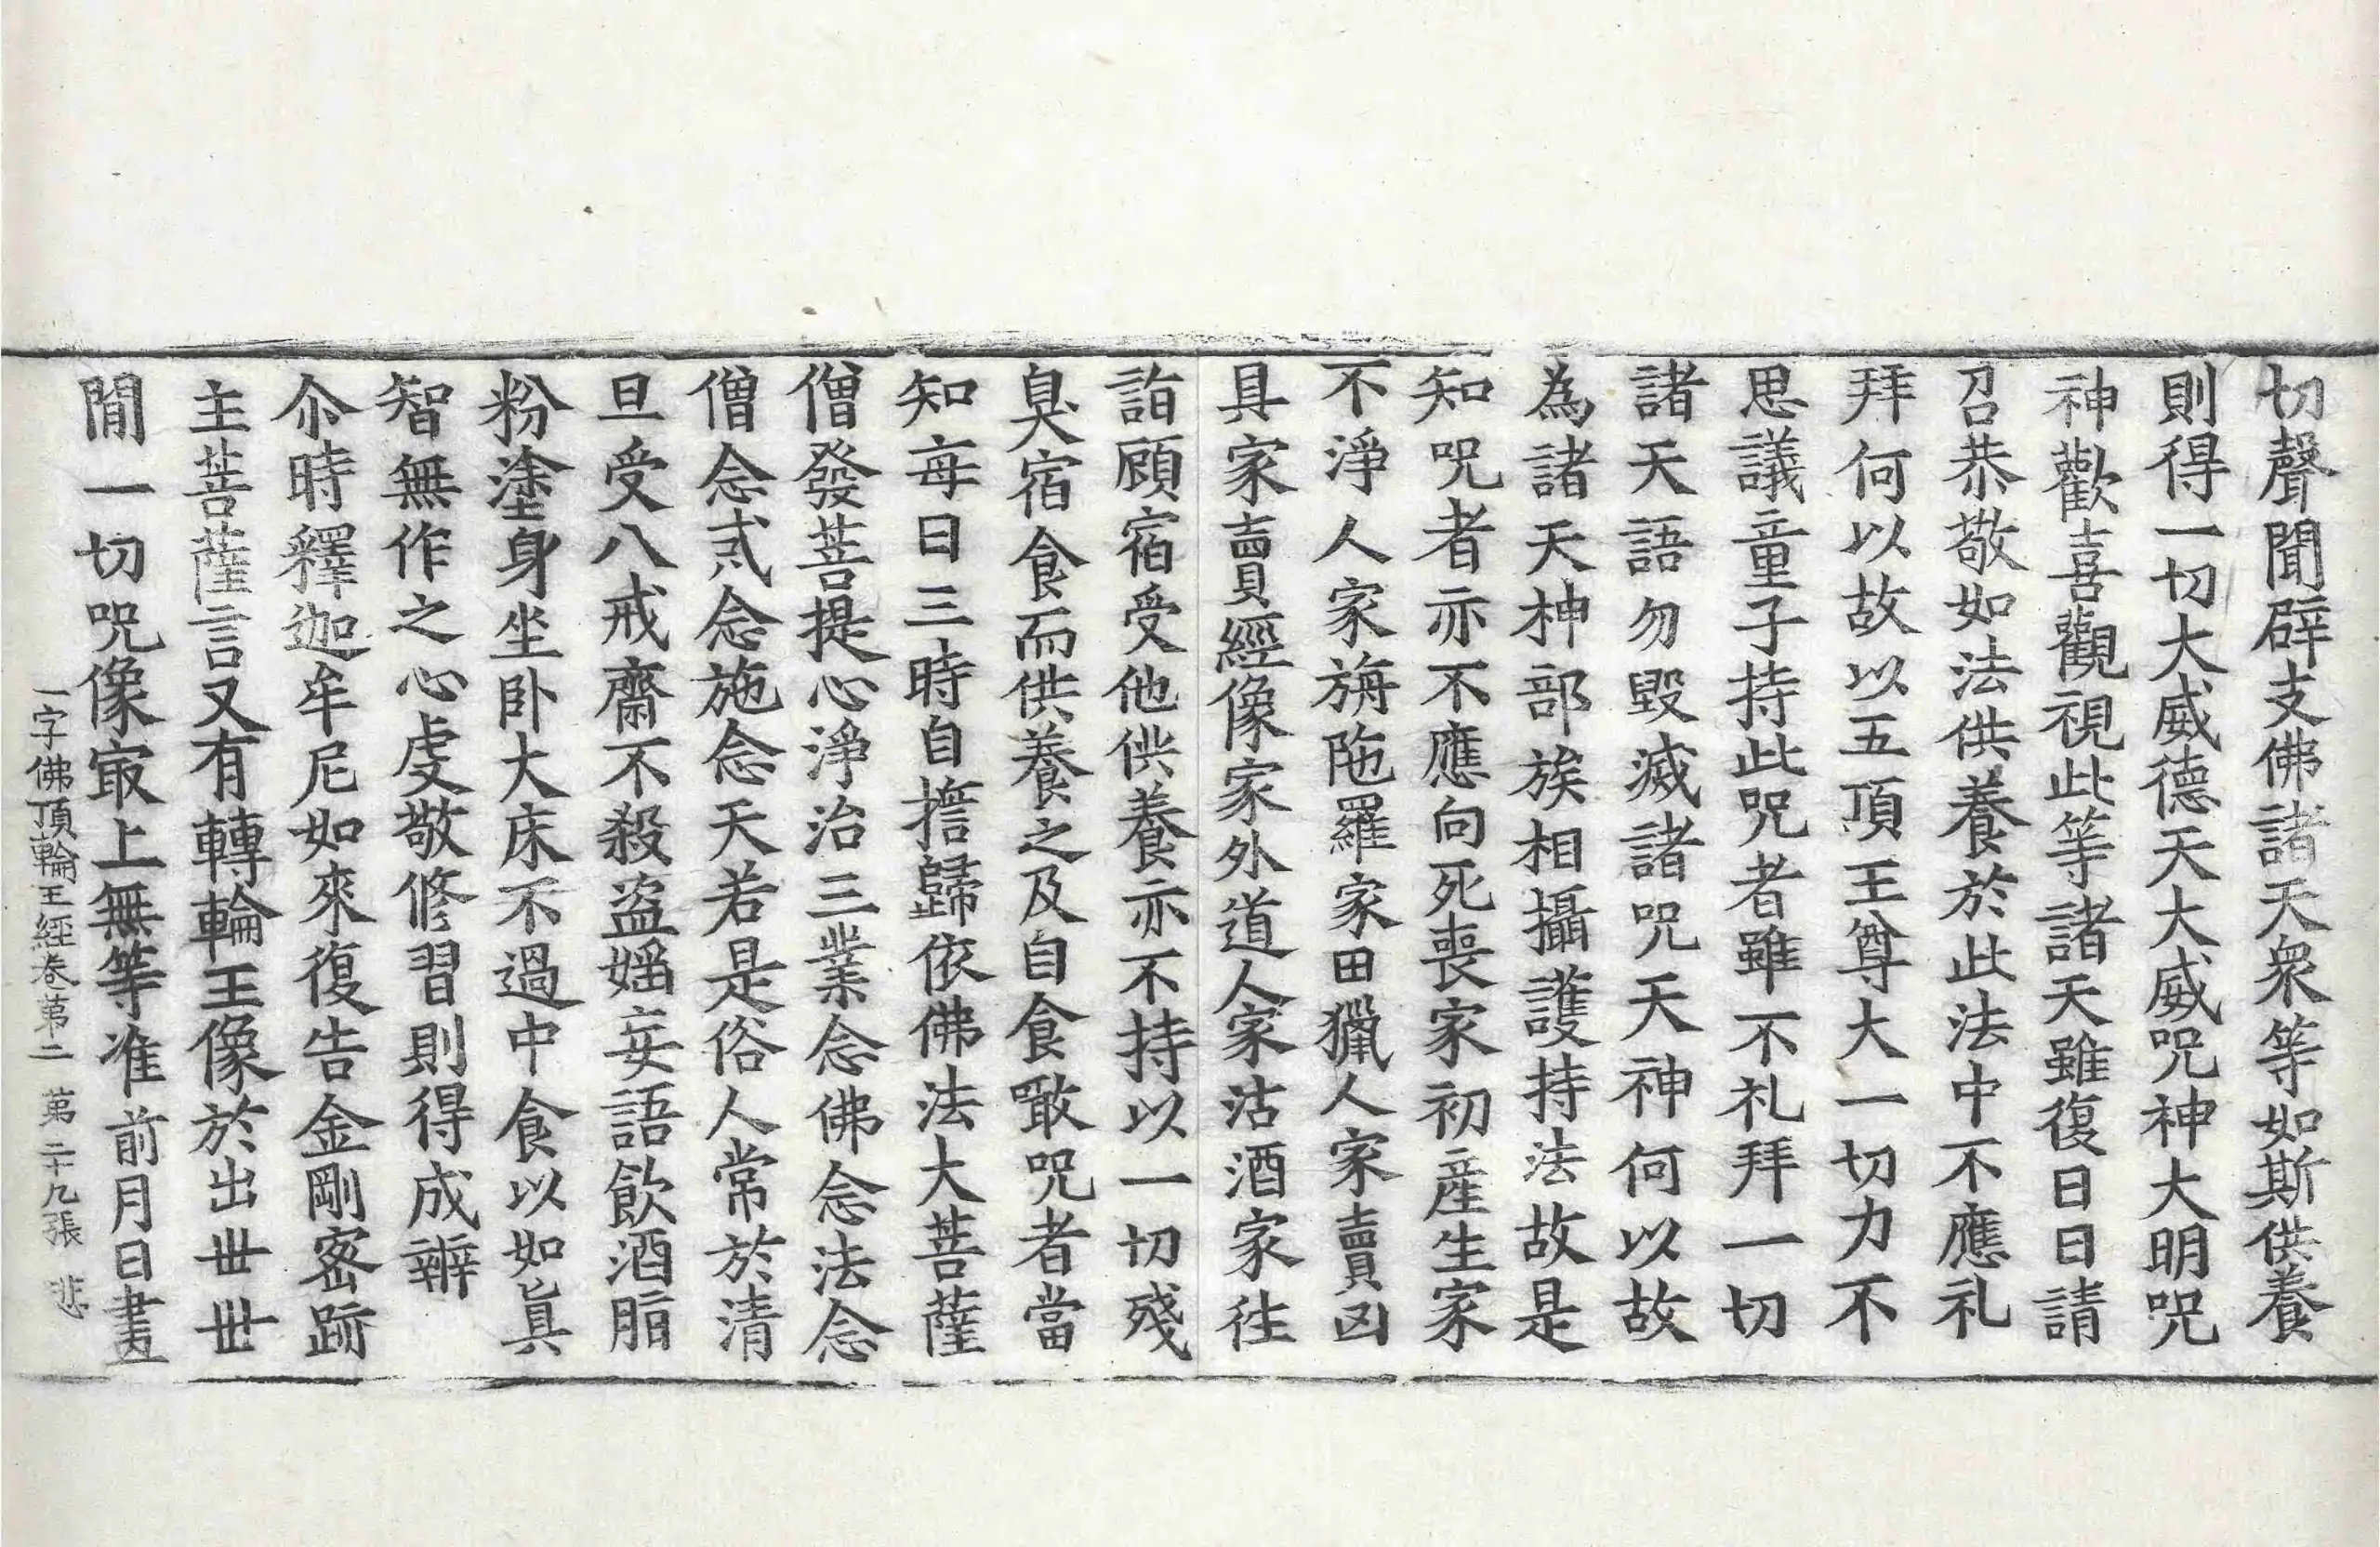 切聲聞辟支佛諸天衆等如斯供養
則得一切大威德天大威呪神大明呪
神歡喜觀視此等諸天雖復日日請
召恭敬如法供養於此法中不應礼
拜何以故以五頂王尊大一切力不
思議童子持此呪者雖不礼拜一切
諸天語勿毀滅諸呪天神何以故
為諸天神部族相攝護持法故是
知呪者亦不應向死喪家初產生家
不淨人家旃陁羅家田獵人家賣凶
具家賣經像家外道人家沽酒家往
詣顧宿受他供養亦不持以一切殘
臭宿食而供養之及自食噉呪者當
知每日三時自誓歸依佛法大菩薩
僧發菩提心淨治三業念佛念法念
僧念戒念施念天若是俗人常於清
旦受八戒齋不殺盜婬妄語飲酒脂
粉塗身坐卧大床不過中食以如真
智無作之心虔敬修習則得成辦
尒時釋迦牟尼如來復告金剛密跡
主菩薩言又有轉輪王像於出世世
閒一切呪像㝡上無等准前月日畫
一字佛頂輪王經卷第二 第二十九張 悲